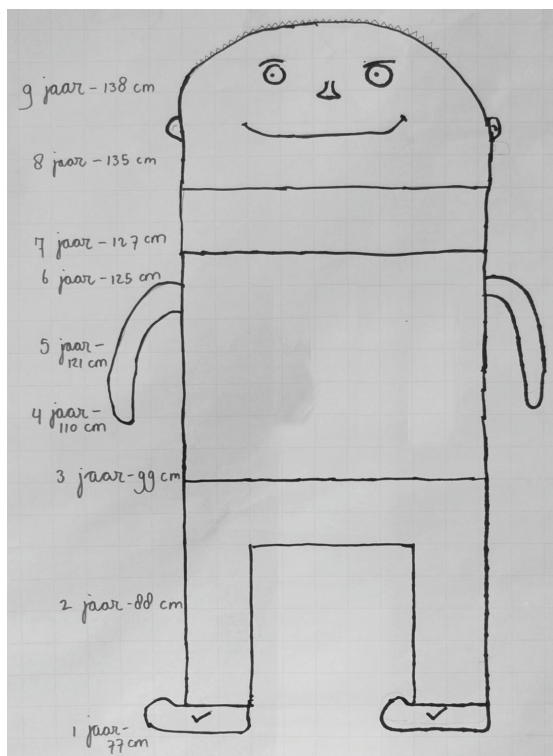 9 jaar - 138 cm
8 jaar - 135 cm
7 jaar - 127 cm
6 jaar - 125 cm
5 jaar -
121 cm
4 jaar -
110 cm
3 jaar - 99 cm
2 jaar - 88 cm
1 jaar -
77 cm